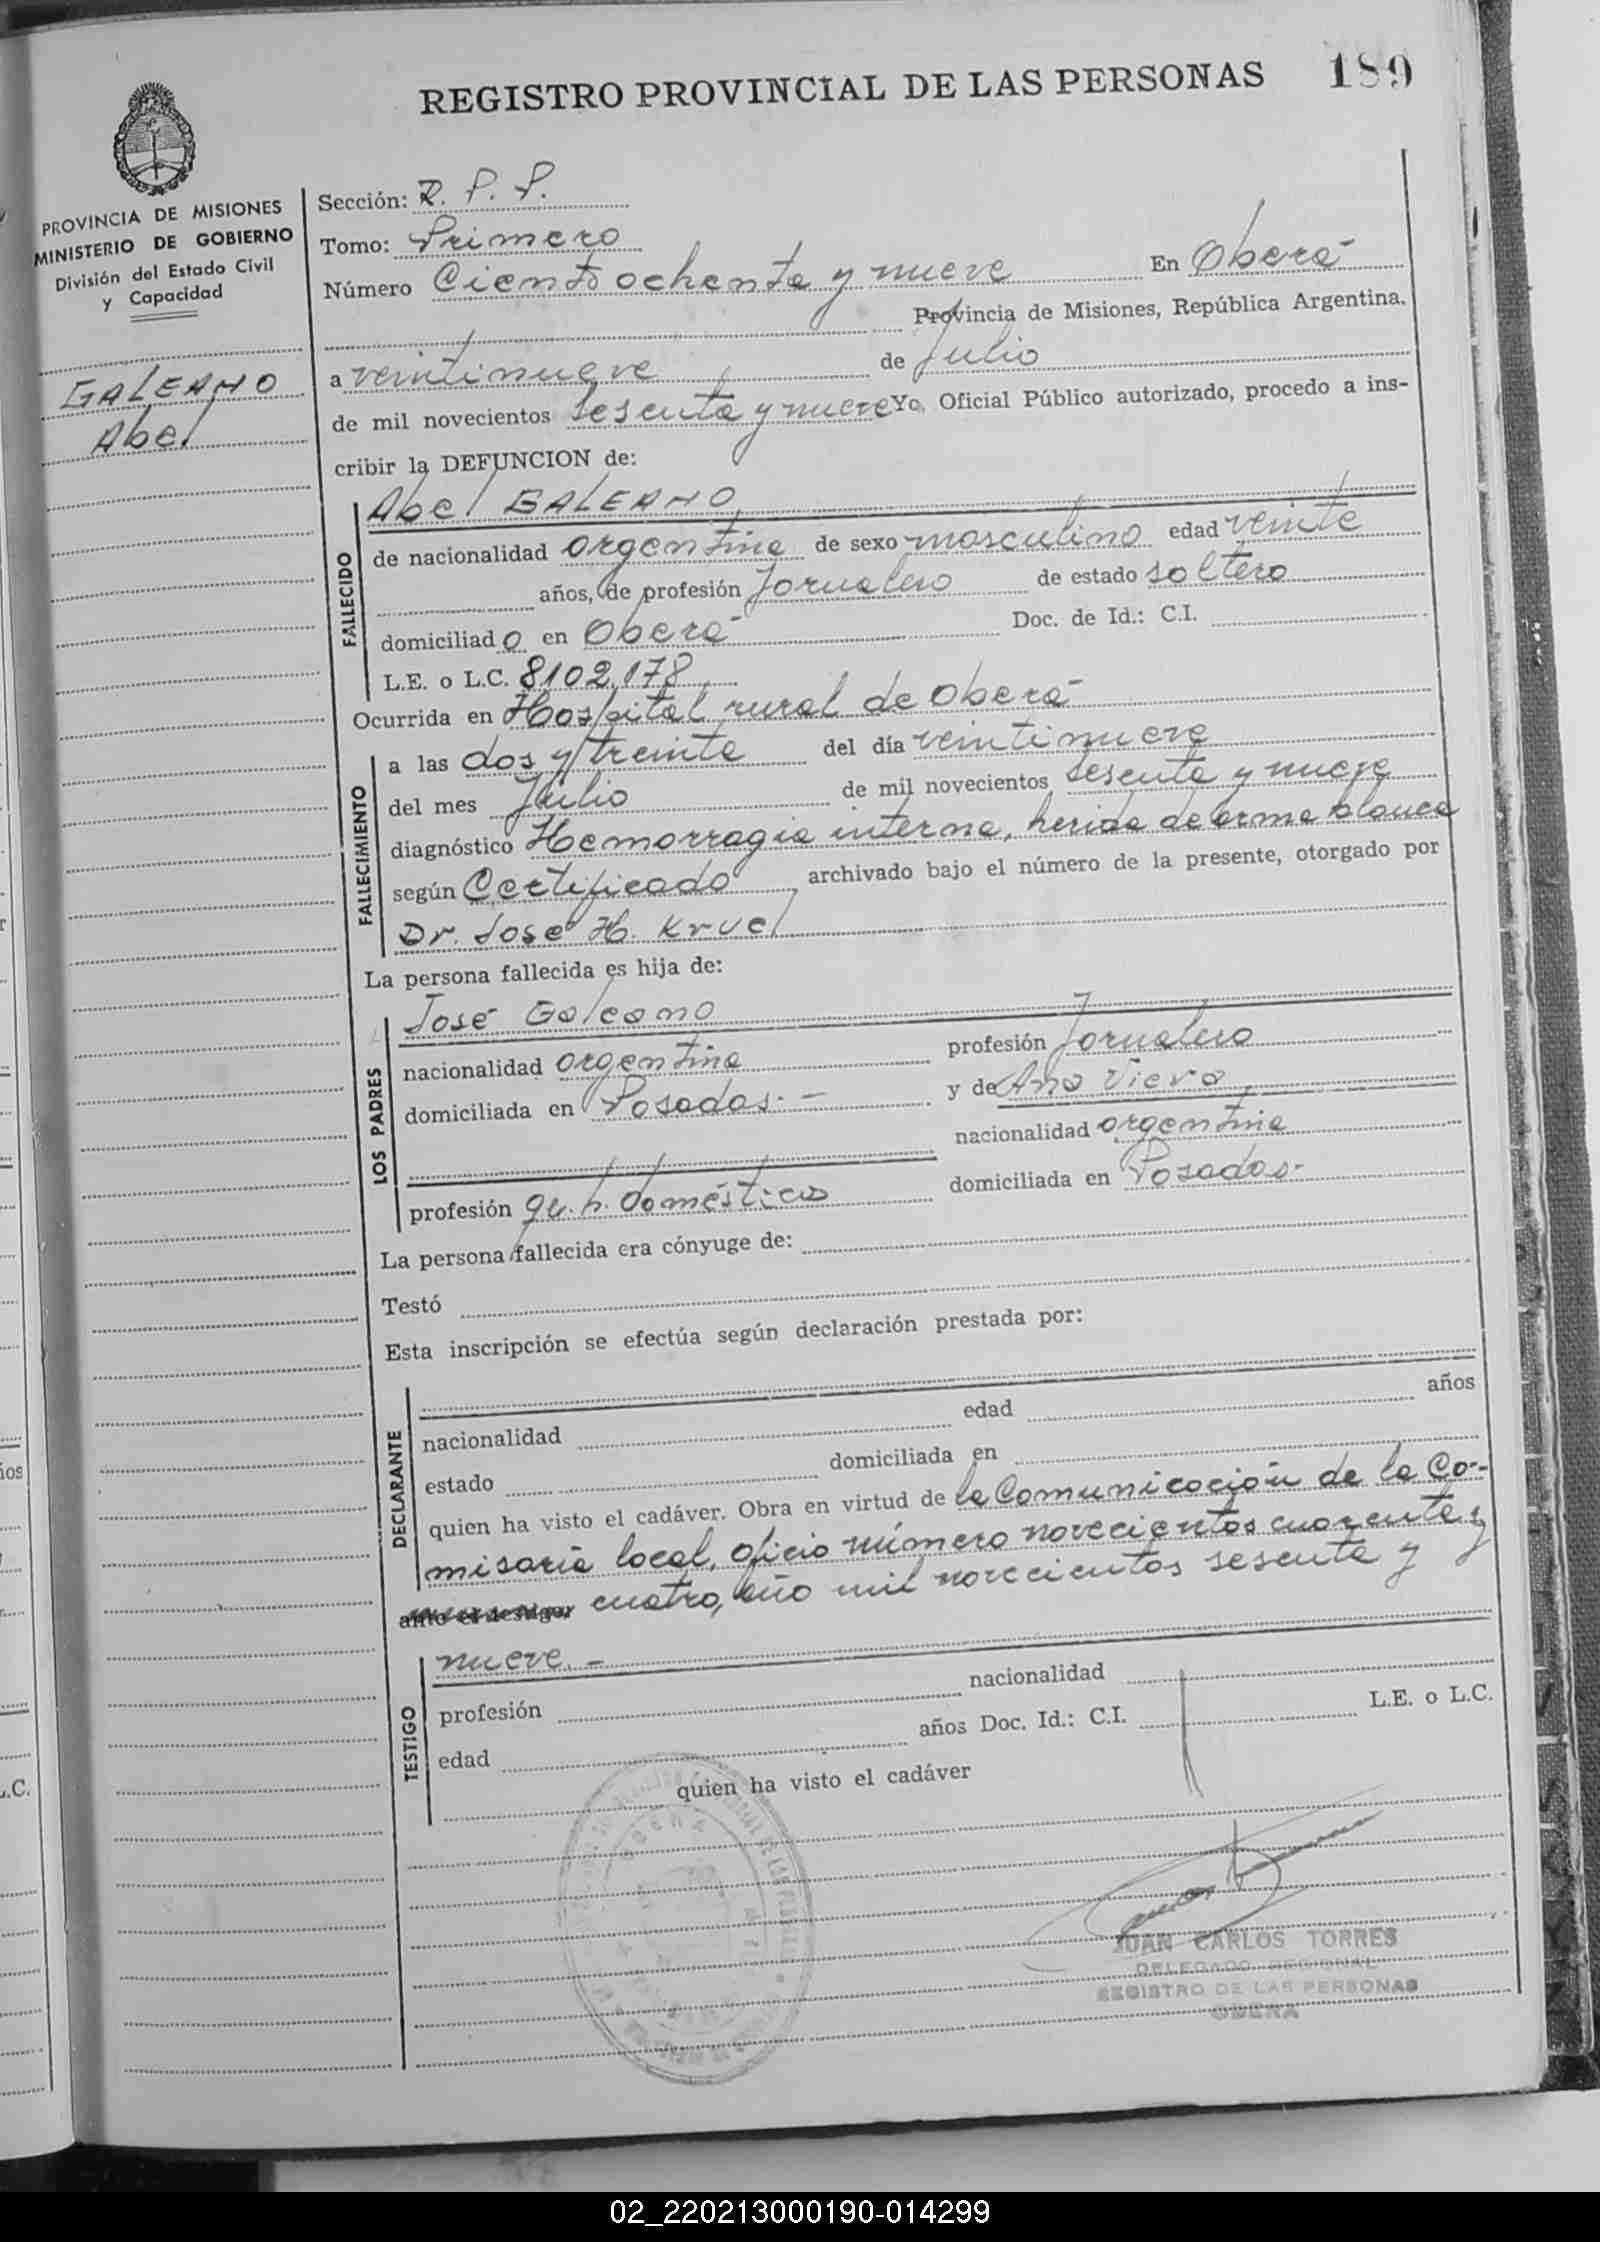 REGISTRO PROVINCIAL DE LAS PERSONAS 189
PROVINCIA DE MISIONES
MINISTERIO DE GOBIERNO
División del Estado Civil
y Capacidad
GALEANO
Abel
Sección: R. P. P.
Tomo: Primero
Número Ciento ochenta y nueve En Oberá
Provincia de Misiones, República Argentina.
a veintinueve de Julio
de mil novecientos sesenta y nueve Yo, Oficial Público autorizado, procedo a ins-
cribir la DEFUNCION de:
FALLECIDO
Abel GALEANO,
de nacionalidad argentina de sexo masculino edad veinte
años, de profesión Jornalero de estado soltero
domiciliado en Oberá Doc. de Id.: C.I.
L.E. o L.C. 8102.178
Ocurrida en Hospital rural de Oberá
FALLECIMIENTO
a las dos y treinta del día veintinueve
del mes Julio de mil novecientos sesenta y nueve
diagnóstico Hemorragia interna, herida de arma blanca
según Certificado, archivado bajo el número de la presente, otorgado por
Dr. José H. Kruel
La persona fallecida es hija de:
LOS PADRES
José Galeano
nacionalidad argentina profesión Jornalero
domiciliada en Posadas.- y de Ana Viera,
nacionalidad argentina
profesión qu. h. domésticos domiciliada en Posadas.-
La persona fallecida era cónyuge de:
Testó
Esta inscripción se efectúa según declaración prestada por:
DECLARANTE
nacionalidad edad años
estado domiciliada en
quien ha visto el cadáver. Obra en virtud de la Comunicación de la Co-
misaria local, oficio número novecientos cuarenta y
ante el testigo, cuatro, año mil novecientos sesenta y
nueve.-
TESTIGO
profesión nacionalidad
edad años Doc. Id.: C.I. L.E. o L.C.
quien ha visto el cadáver
JUAN CARLOS TORRES
DELEGADO REGIONAL
REGISTRO DE LAS PERSONAS
OBERA
02_220213000190-014299